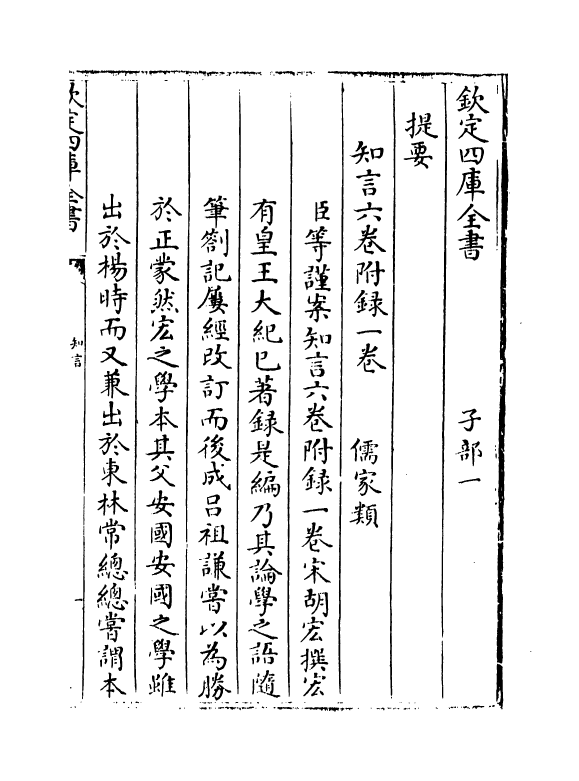 欽定四庫全書　　　　子部一
提要
知言六卷附録一卷　　儒家類
臣等謹案知言六卷附録一卷宋胡宏撰宏
有皇王大紀已著録是編乃其論學之語隨
筆劄記屢經改訂而後成吕祖謙嘗以為勝
於正蒙然宏之學本其父安國安國之學雖
出於楊時而又兼出於東林常總總嘗謂本
欽定四庫全書
知言
一